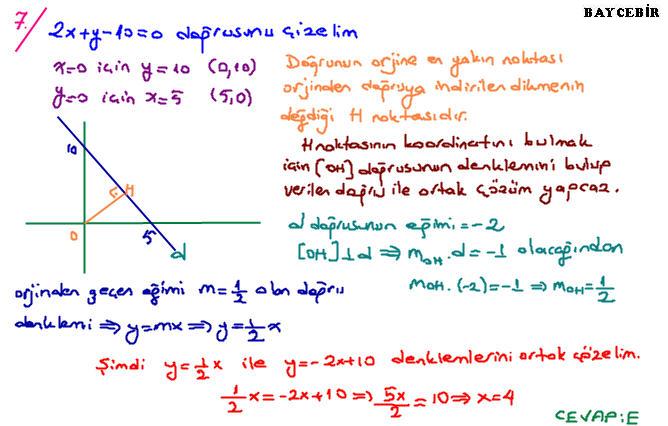 BAYCEBİR
7./ 2x+y-10=0 doğrusunu çizelim
x=0 için y=10 (0,10)
y=0 için x=5 (5,0)
Doğrunun orjine en yakın noktası
orjinden doğruya indirilen dikmenin
değdiği H noktasıdır.
H noktasının koordinatını bulmak
için [OH] doğrusunun denklemini bulup
verilen doğru ile ortak çözüm yapcaz.
10
H
0
5
d
d doğrusunun eğimi=-2
[OH]⊥d ⇒ m_OH.d=-1 olacağından
m_OH.(-2)=-1 ⇒ m_OH=1/2
orjinden geçen eğimi m=1/2 olan doğru
denklemi ⇒ y=mx ⇒ y=1/2x
Şimdi y=1/2x ile y=-2x+10 denklemlerini ortak çözelim.
1/2x=-2x+10 ⇒ 5x/2=10 ⇒ x=4
CEVAP:E